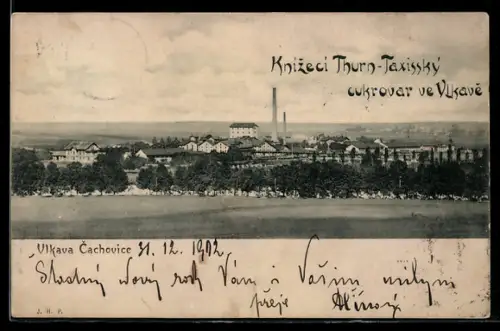 Knížecí Thurn-Taxisský
cukrovar ve Vlkavě
Vlkava Čachovice 31. 12. 1902
Šťastný nový rok Vám i Vašim milým
přeje
J. H. P.